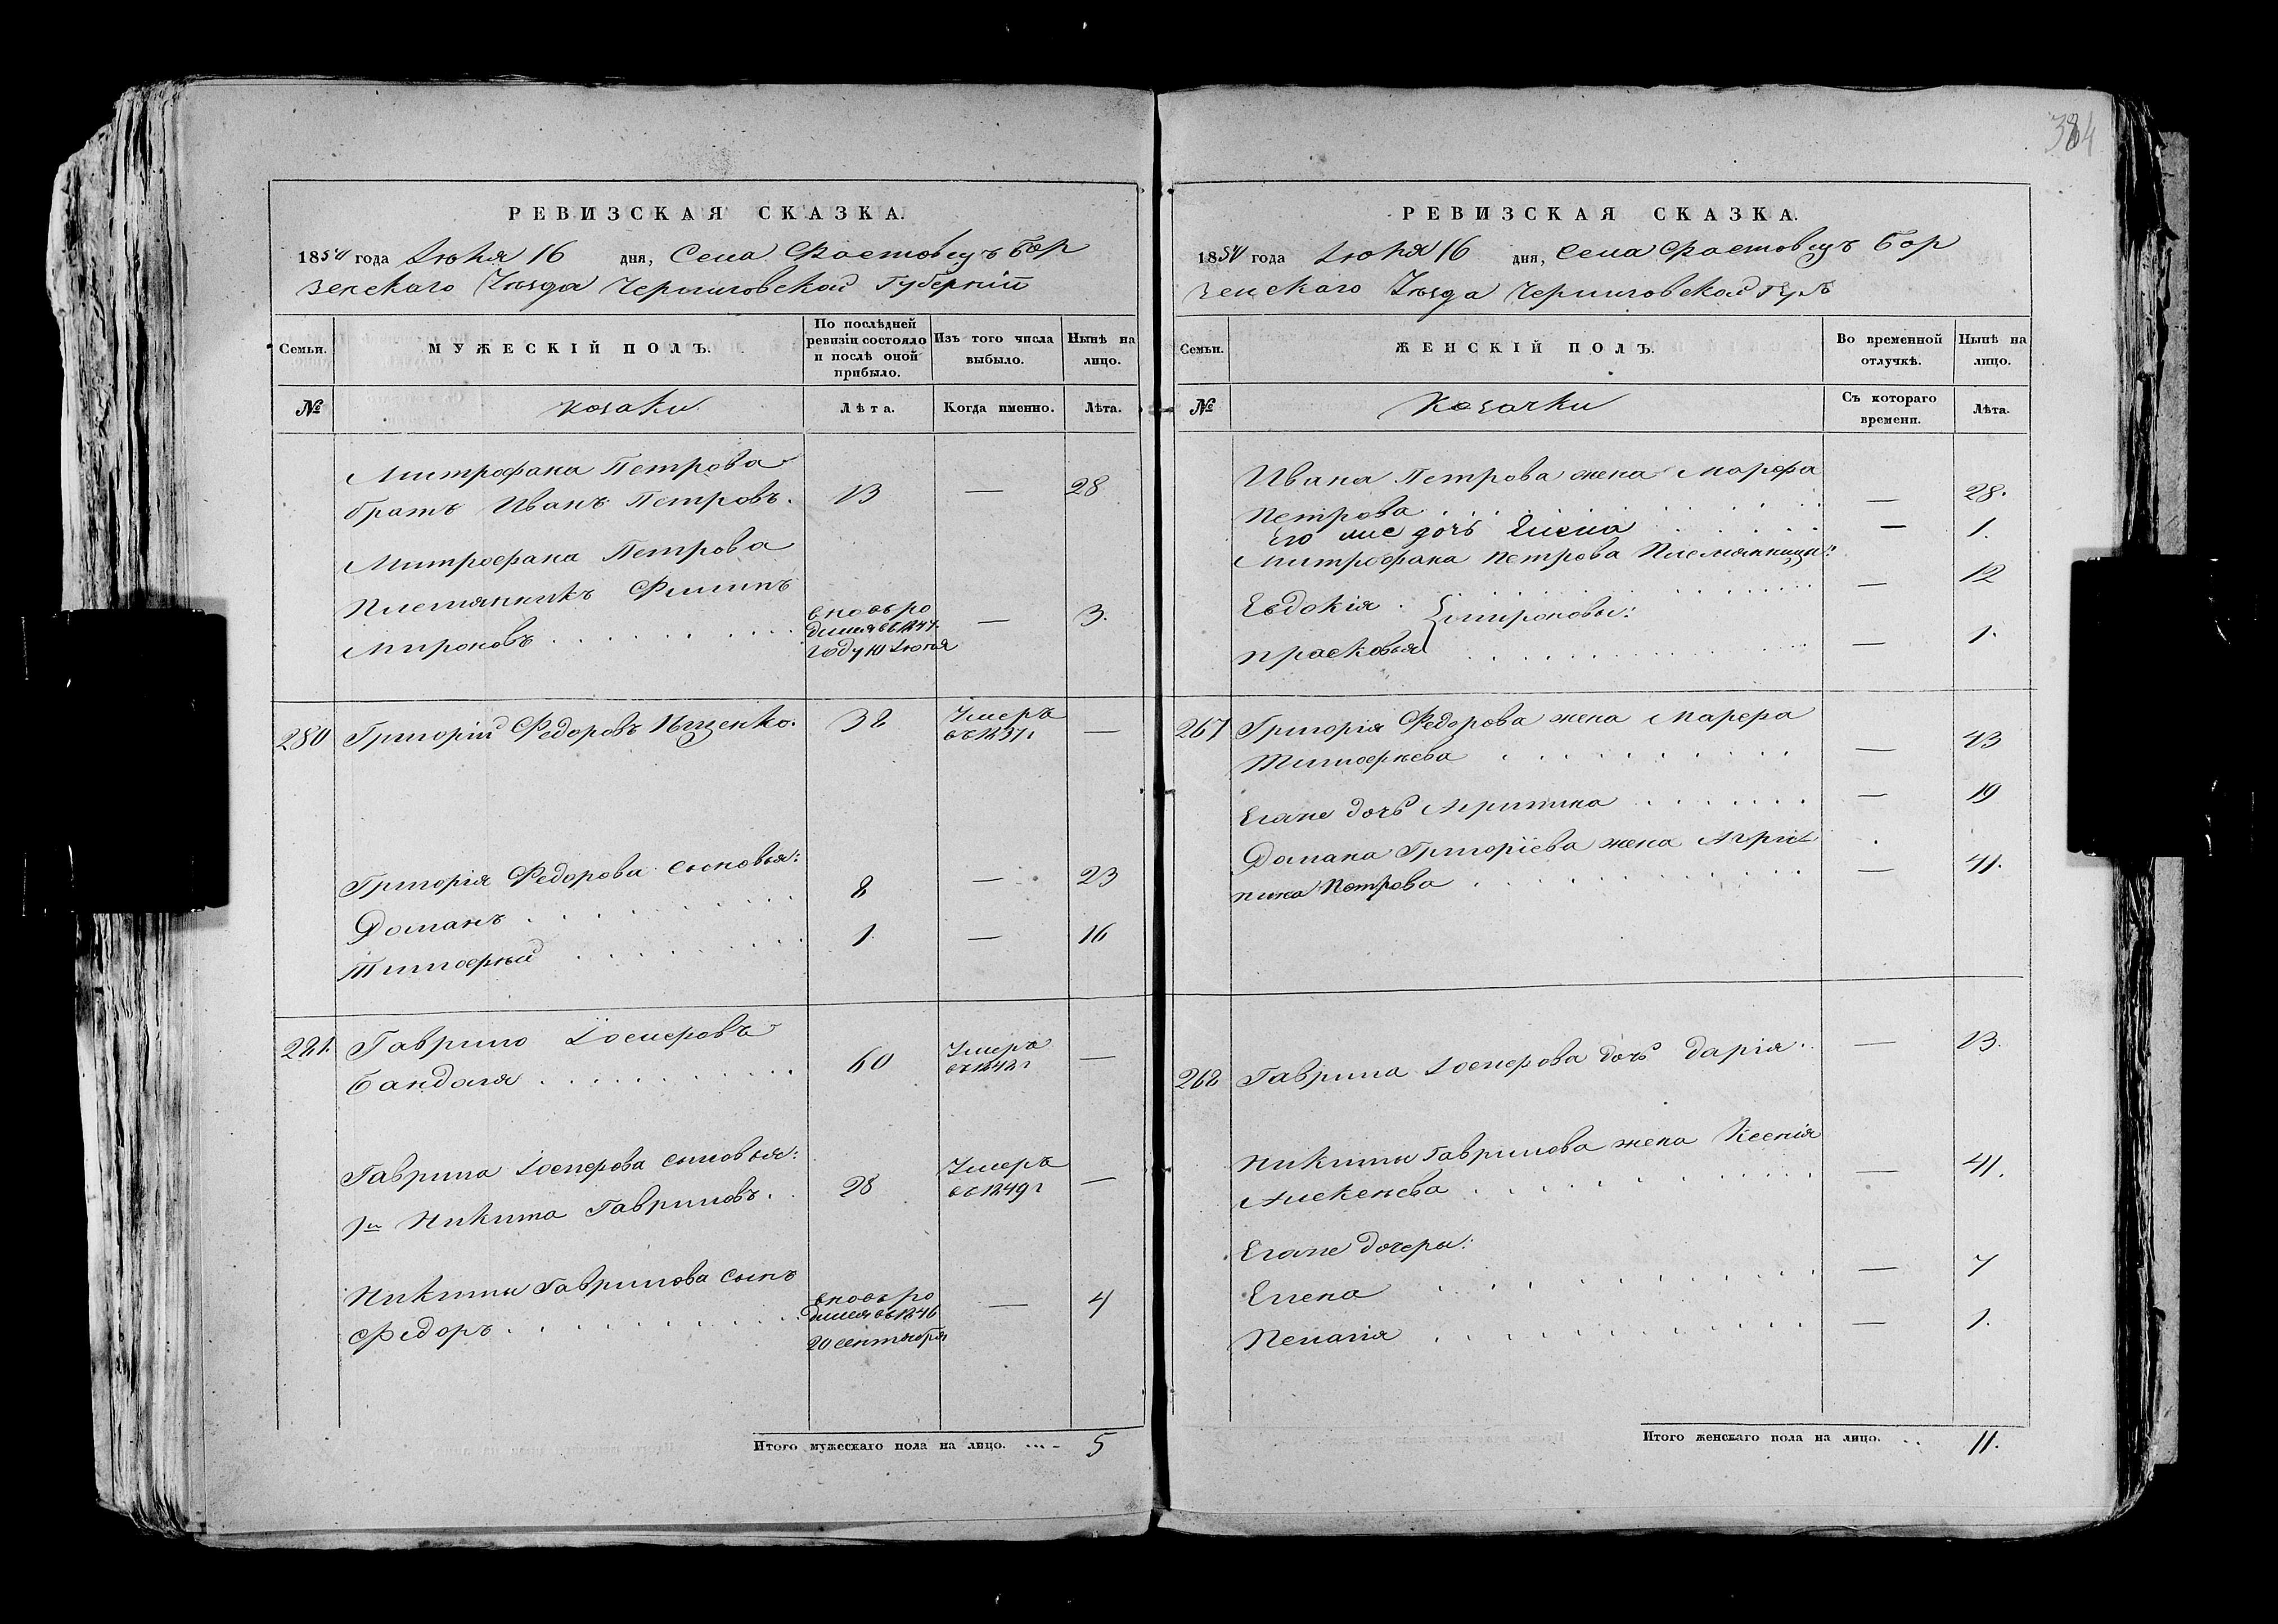 384
РЕВИЗСКАЯ СКАЗКА.
1850 года Іюня 16 дня, Села Фастовецъ Бор
зенскаго Уѣзда Черниговской Губерніи
Семьи.
МУЖЕСКІЙ ПОЛЪ.
По послѣдней ревизіи состояло и послѣ оной прибыло.
Изъ того числа выбыло.
Нынѣ на лицо.
№
козаки
Лѣта.
Когда именно.
Лѣта.
Митрофана Петрова
братъ Иванъ Петровъ. 13 — 28
Митрофана Петрова
Племянникъ Филипъ
Мироновъ вновь ро
дился въ 1847.
году 10 Іюня — 3.
280 Григорій Федоровъ Ищенко. 38 Умеръ
въ 1837г —
Григорія Федорова сыновья:
Доманъ 8 — 23
Тимофѣй 1. — 16
281. Гаврило Іосифовъ
Бандола 60 Умеръ
въ 1842г —
Гаврила Іосифова сыновья:
1й Никита Гавриловъ. 28 Умеръ
въ 1849г —
Никиты Гаврилова сынъ
Федоръ вновь ро
дился въ 1846
20 сентября — 4
Итого мужескаго пола на лицо. 5
РЕВИЗСКАЯ СКАЗКА.
1850 года Іюня 16 дня, Села Фастовецъ Бор
зенскаго Уѣзда Черниговской Губ
Семьи.
ЖЕНСКІЙ ПОЛЪ.
Во временной отлучкѣ.
Нынѣ на лицо.
№
Козачки
Съ котораго времени.
Лѣта.
Ивана Петрова жена Марфа
Петрова — 28.
Его же дочь — 1.
Митрофана Петрова Племянницы:
Евдокія — 12
Мироновы:
Прасковья — 1.
267 Григорія Федорова жена Марфа
Тимофѣева — 43
Егоже дочь Агрипина — 19
Домана Григоріева жена Агри
пина Петрова — 41.
268 Гаврила Іосифова дочь Дарія — 13.
Никиты Гаврилова жена Ксенія
Алексѣева — 41.
Егоже дочеры:
Елена — 7
Пелагія — 1.
Итого женскаго пола на лицо. 11.